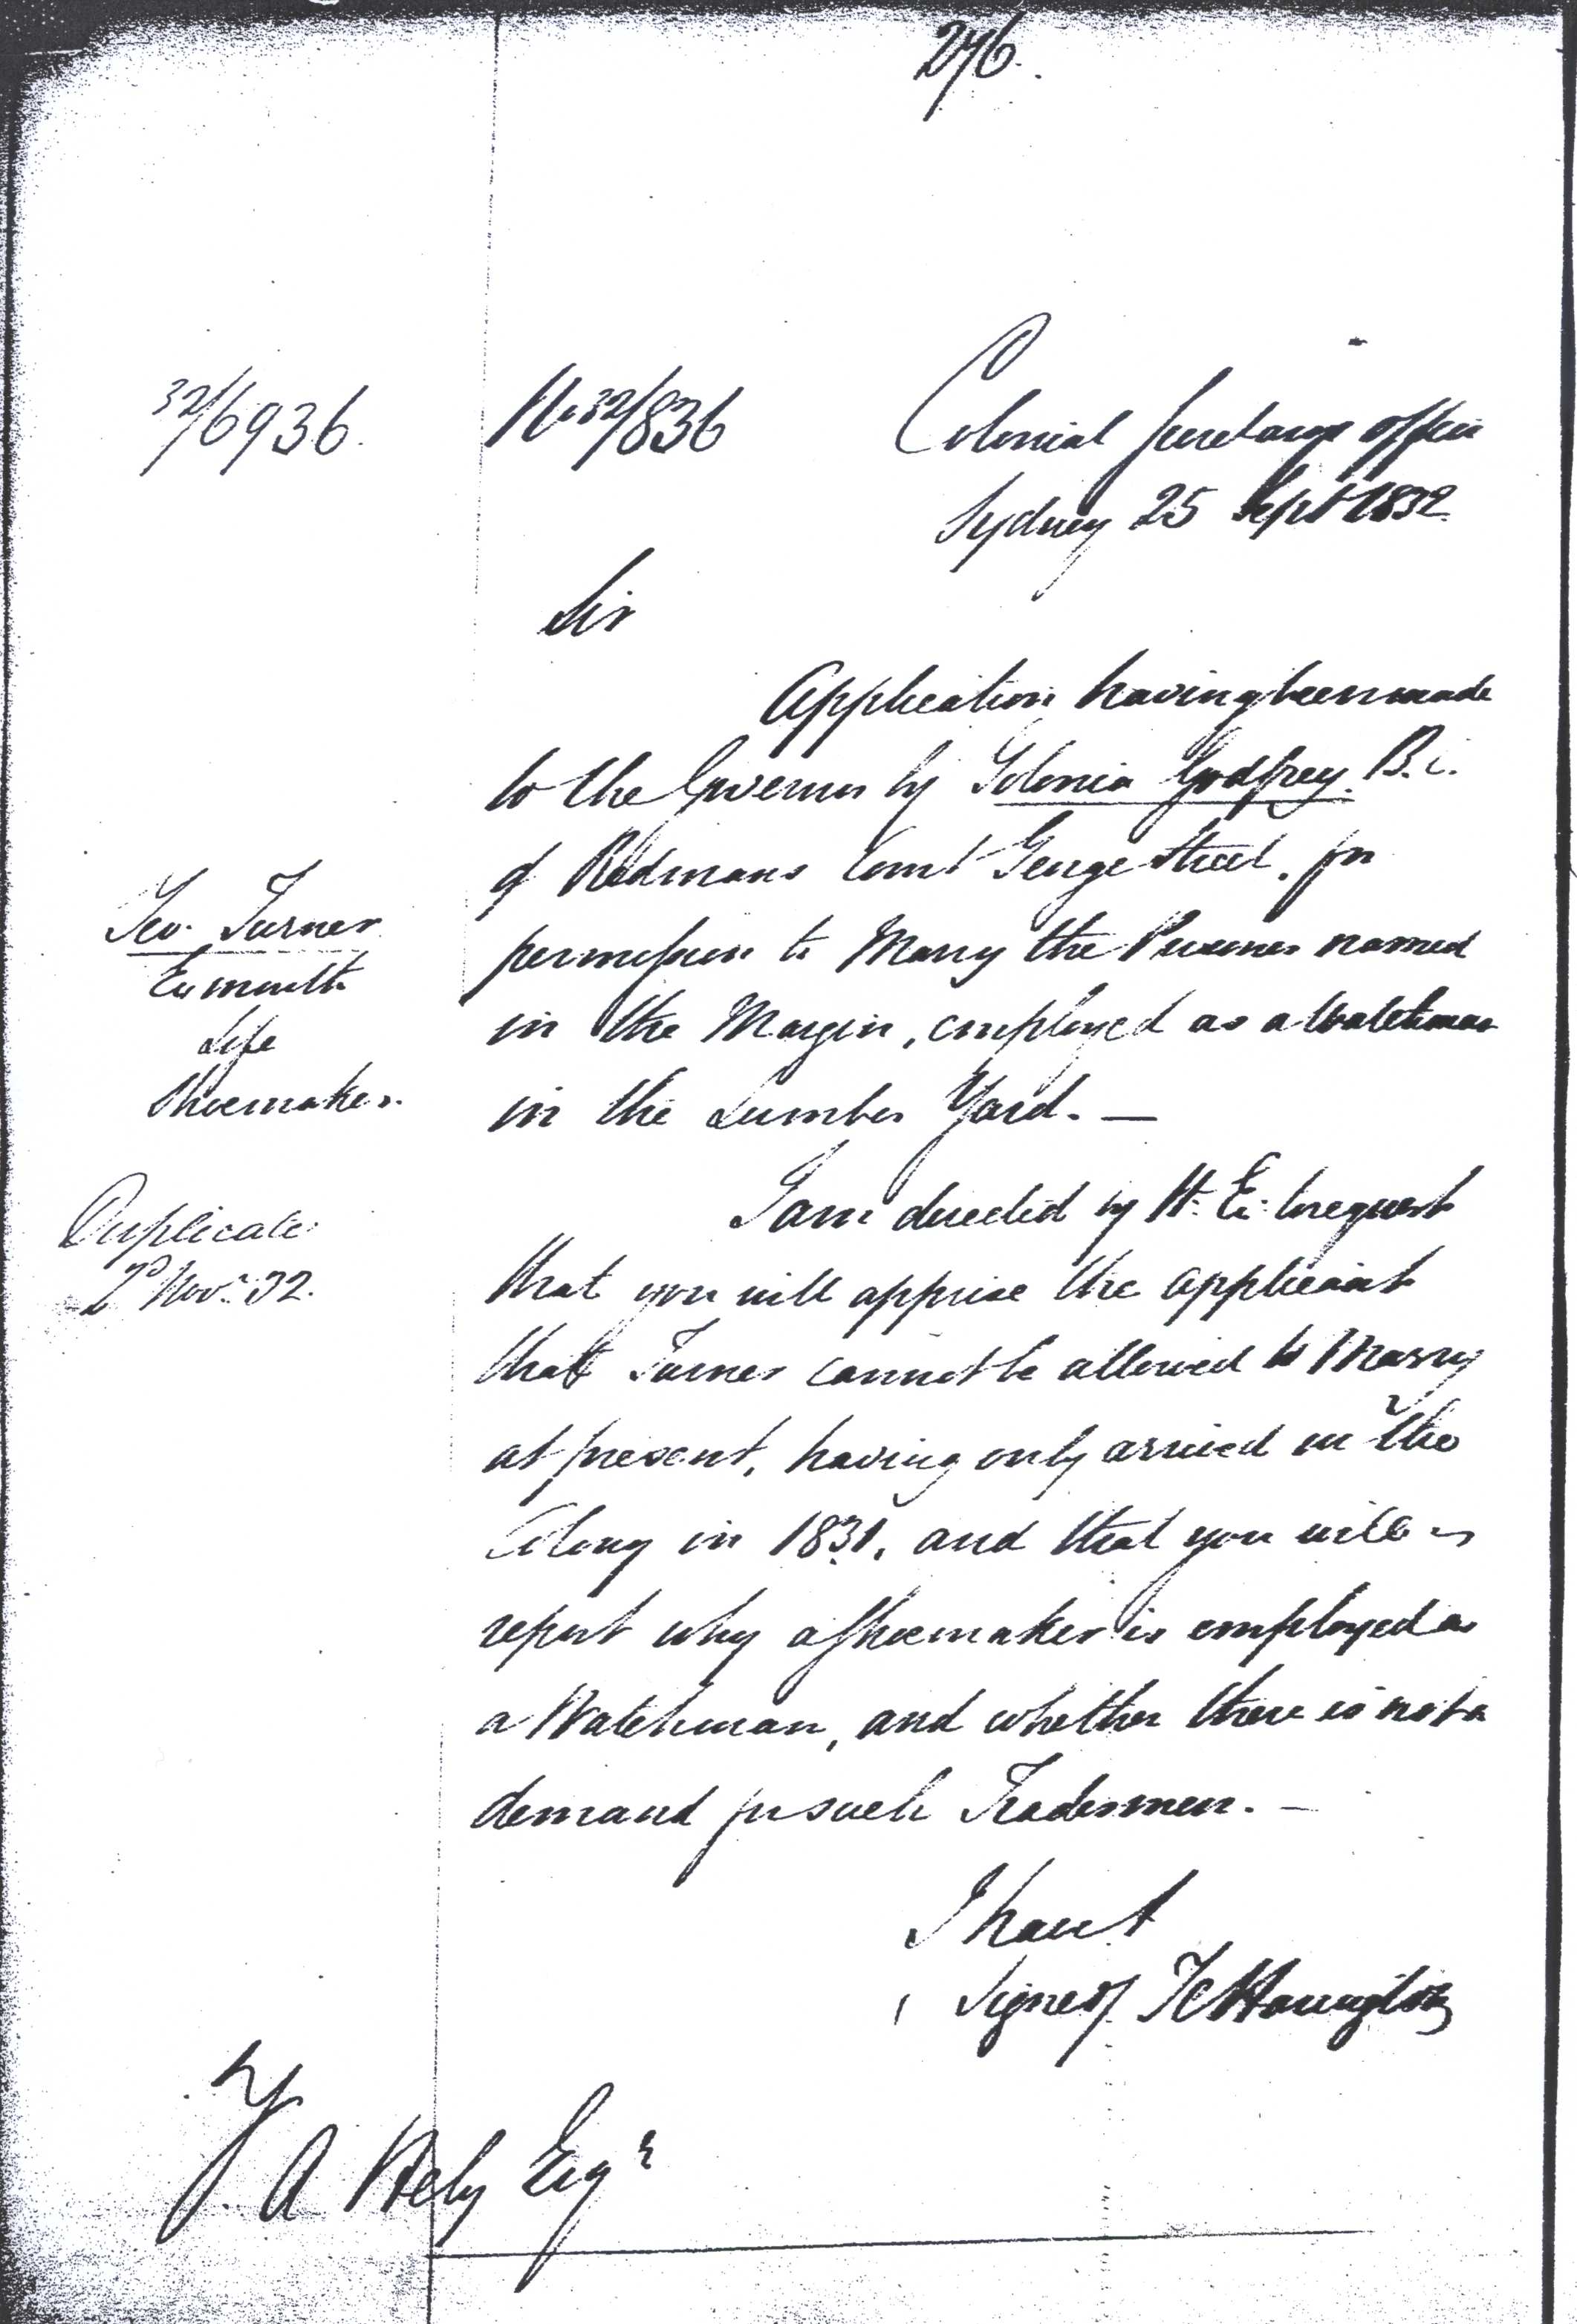 276.
32/6936.
No 32/836
Colonial Secretarys office
Sydney 25 Sept 1832
Sir
Application having been made
to the Governor by Godfrey. B.C.
of Redmans Court George Street, for
permission to Marry the Prisoner named
in the Margin, employed as a Watchman
in the Lumber Yard. —
Geo. Turner
Exmouth
Life
Shoemaker.
Duplicate
2d Nov. 32.
I am directed by H. E. to request
that you will apprise the applicant
that Turner cannot be allowed to Marry
at present, having only arrived in the
Colony in 1831, and that you will
report why a Shoemaker is employed as
a Watchman, and whether there is not a
demand for such Tradesmen. —
I have &
Signed T C Harington
F. A Hely Esqr